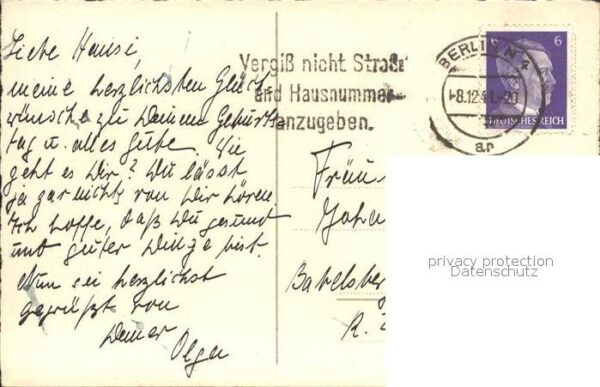 Liebe Hansi,
meine herzlichsten Glück-
wünsche zu Deinem Geburts-
tag u. alles Gute. Wie
geht es Dir? Du lässt
ja gar nichts von Dir hören.
Ich hoffe, daß Du gesund
und guter Dinge bist.
Nun sei herzlichst
gegrüßt von
Deiner
Olga
Vergiß nicht Straße
und Hausnummer
anzugeben.
BERLIN N 4
8.12.41.-20
ar
6 6
DEUTSCHES REICH
Fräu
Joha
Babelsber
R.
privacy protection
Datenschutz